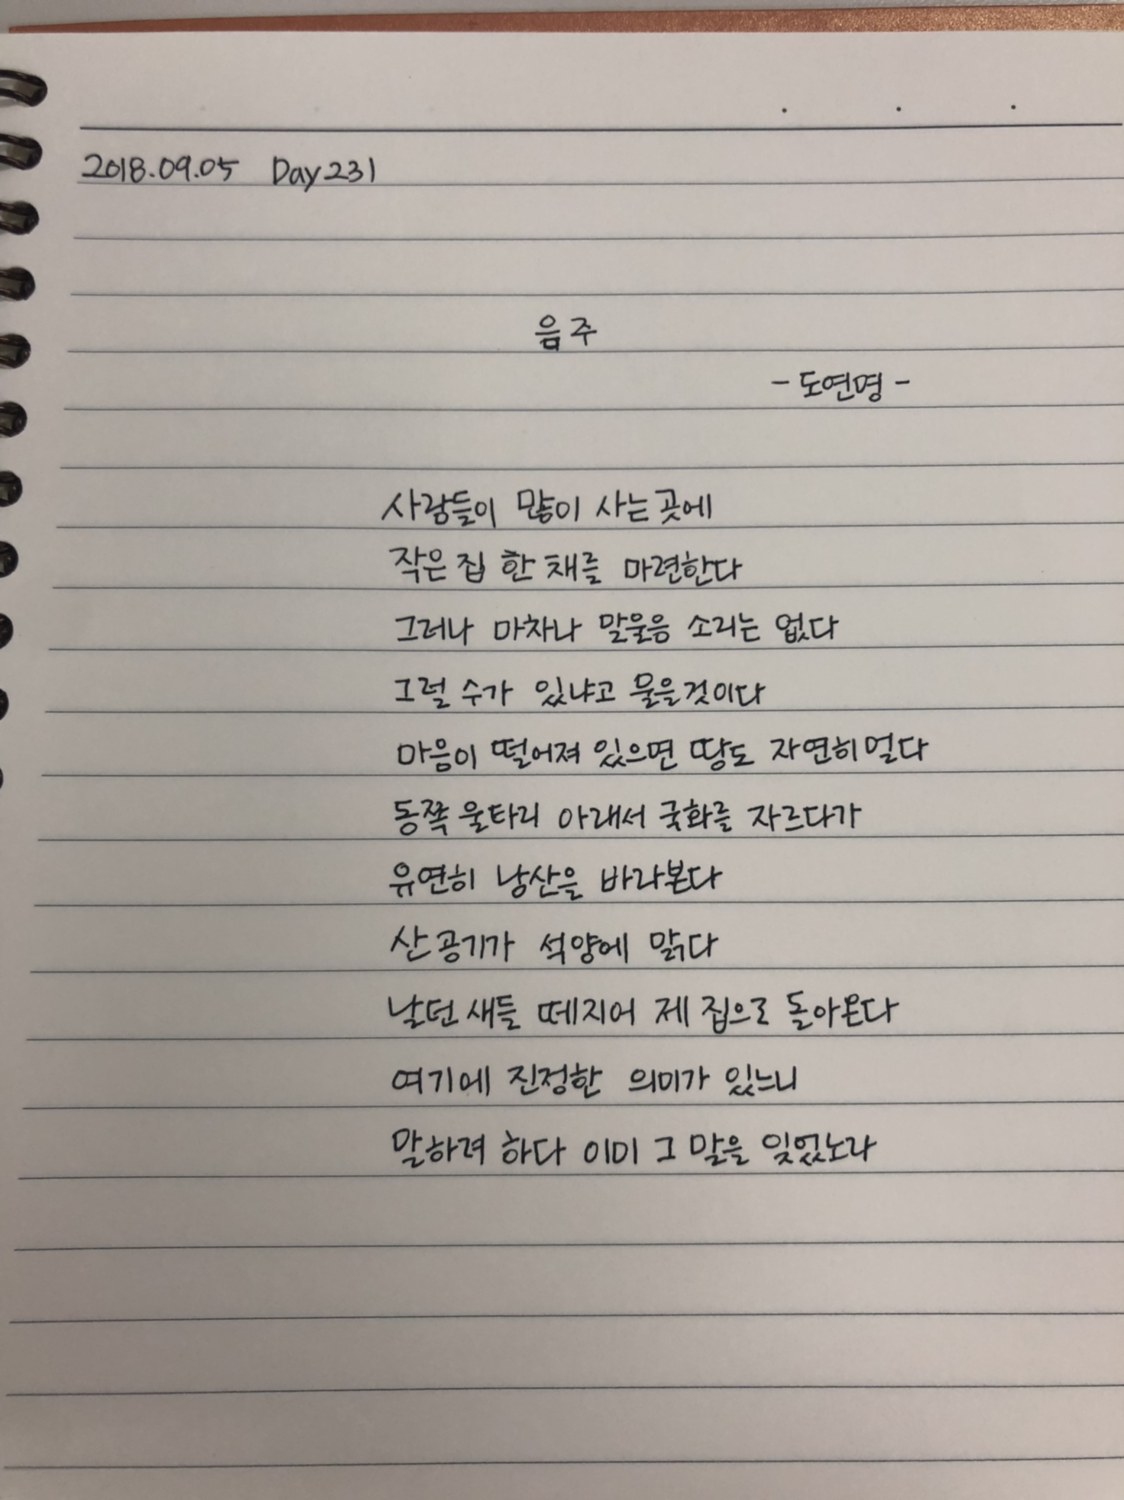 2018.09.05 Day231
음주
- 도연명 -
사람들이 많이 사는 곳에
작은 집 한 채를 마련한다
그러나 마차나 말울음 소리는 없다
그럴 수가 있냐고 물을것이다
마음이 떨어져 있으면 땅도 자연히 멀다
동쪽 울타리 아래서 국화를 자르다가
유연히 남산을 바라본다
산 공기가 석양에 맑다
날던 새들 떼지어 제 집으로 돌아온다
여기에 진정한 의미가 있느니
말하려 하다 이미 그 말을 잊었노라